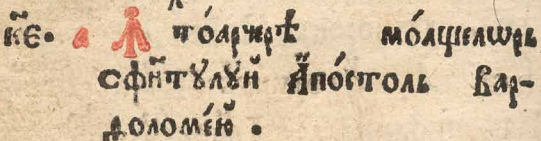 к҃е. а Ꙟтоарчерѣ моащелѡрь
сфн҃тꙋлꙋй Апо́столь Вар-
доломе́ю .